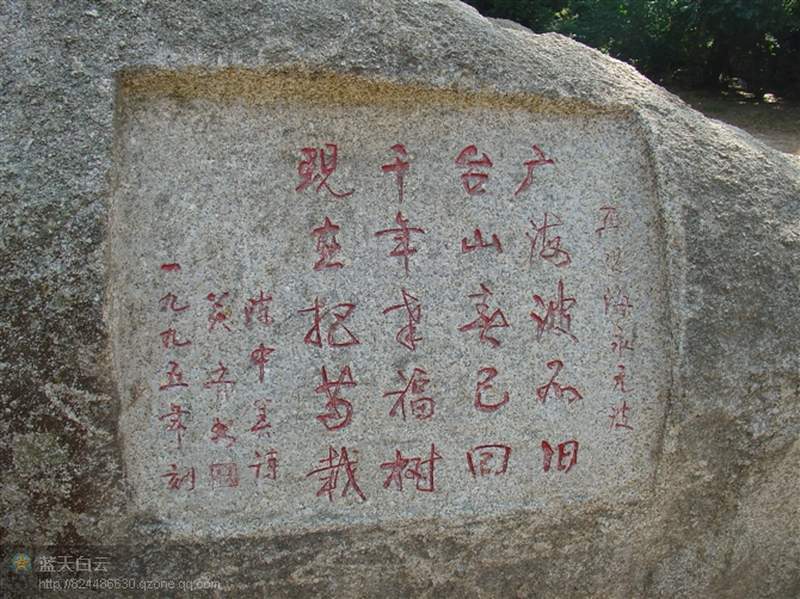 再海永无波
广海波旧
台山春已回
千年幸福树
现在把苗栽
陈中美诗
一九九五年刻
蓝天白云
http://824486630.qzone.qq.com/